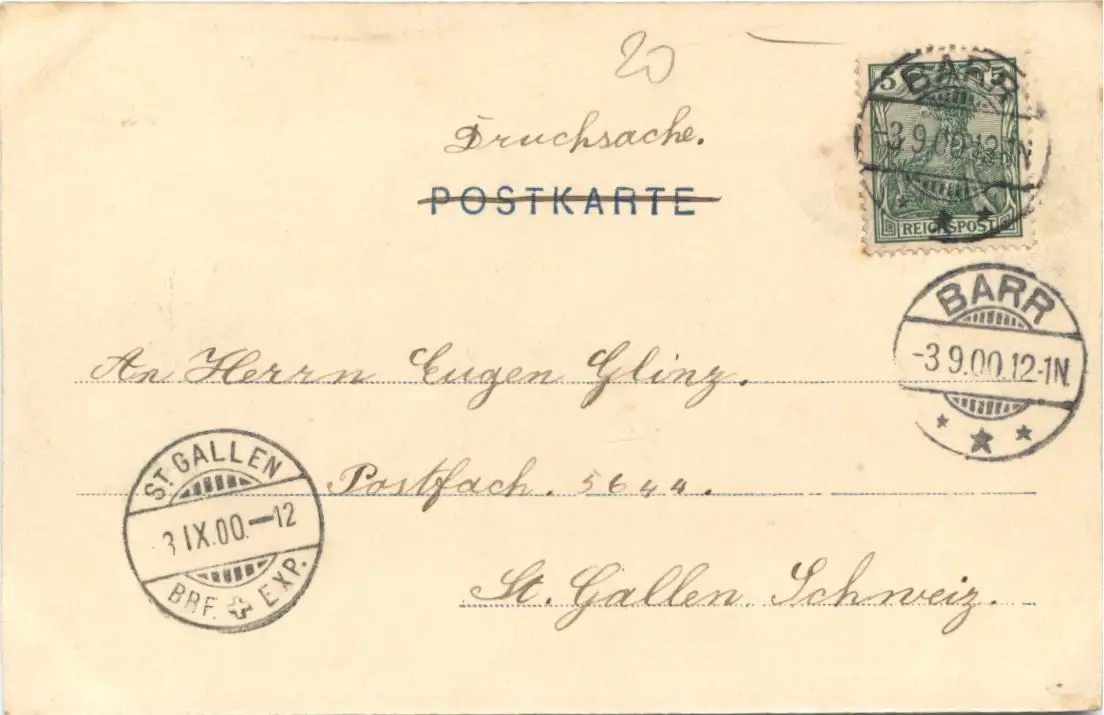 20
Drucksache.
POSTKARTE
5 5
REICHSPOST
BARR
-3 9.00.12-1N.
BARR
-3 9.00.12-1N.
An Herrn Eugen Glinz.
Postfach. 5644.
St. Gallen Schweiz.
ST. GALLEN
3 IX.00.—12
BRF. EXP.